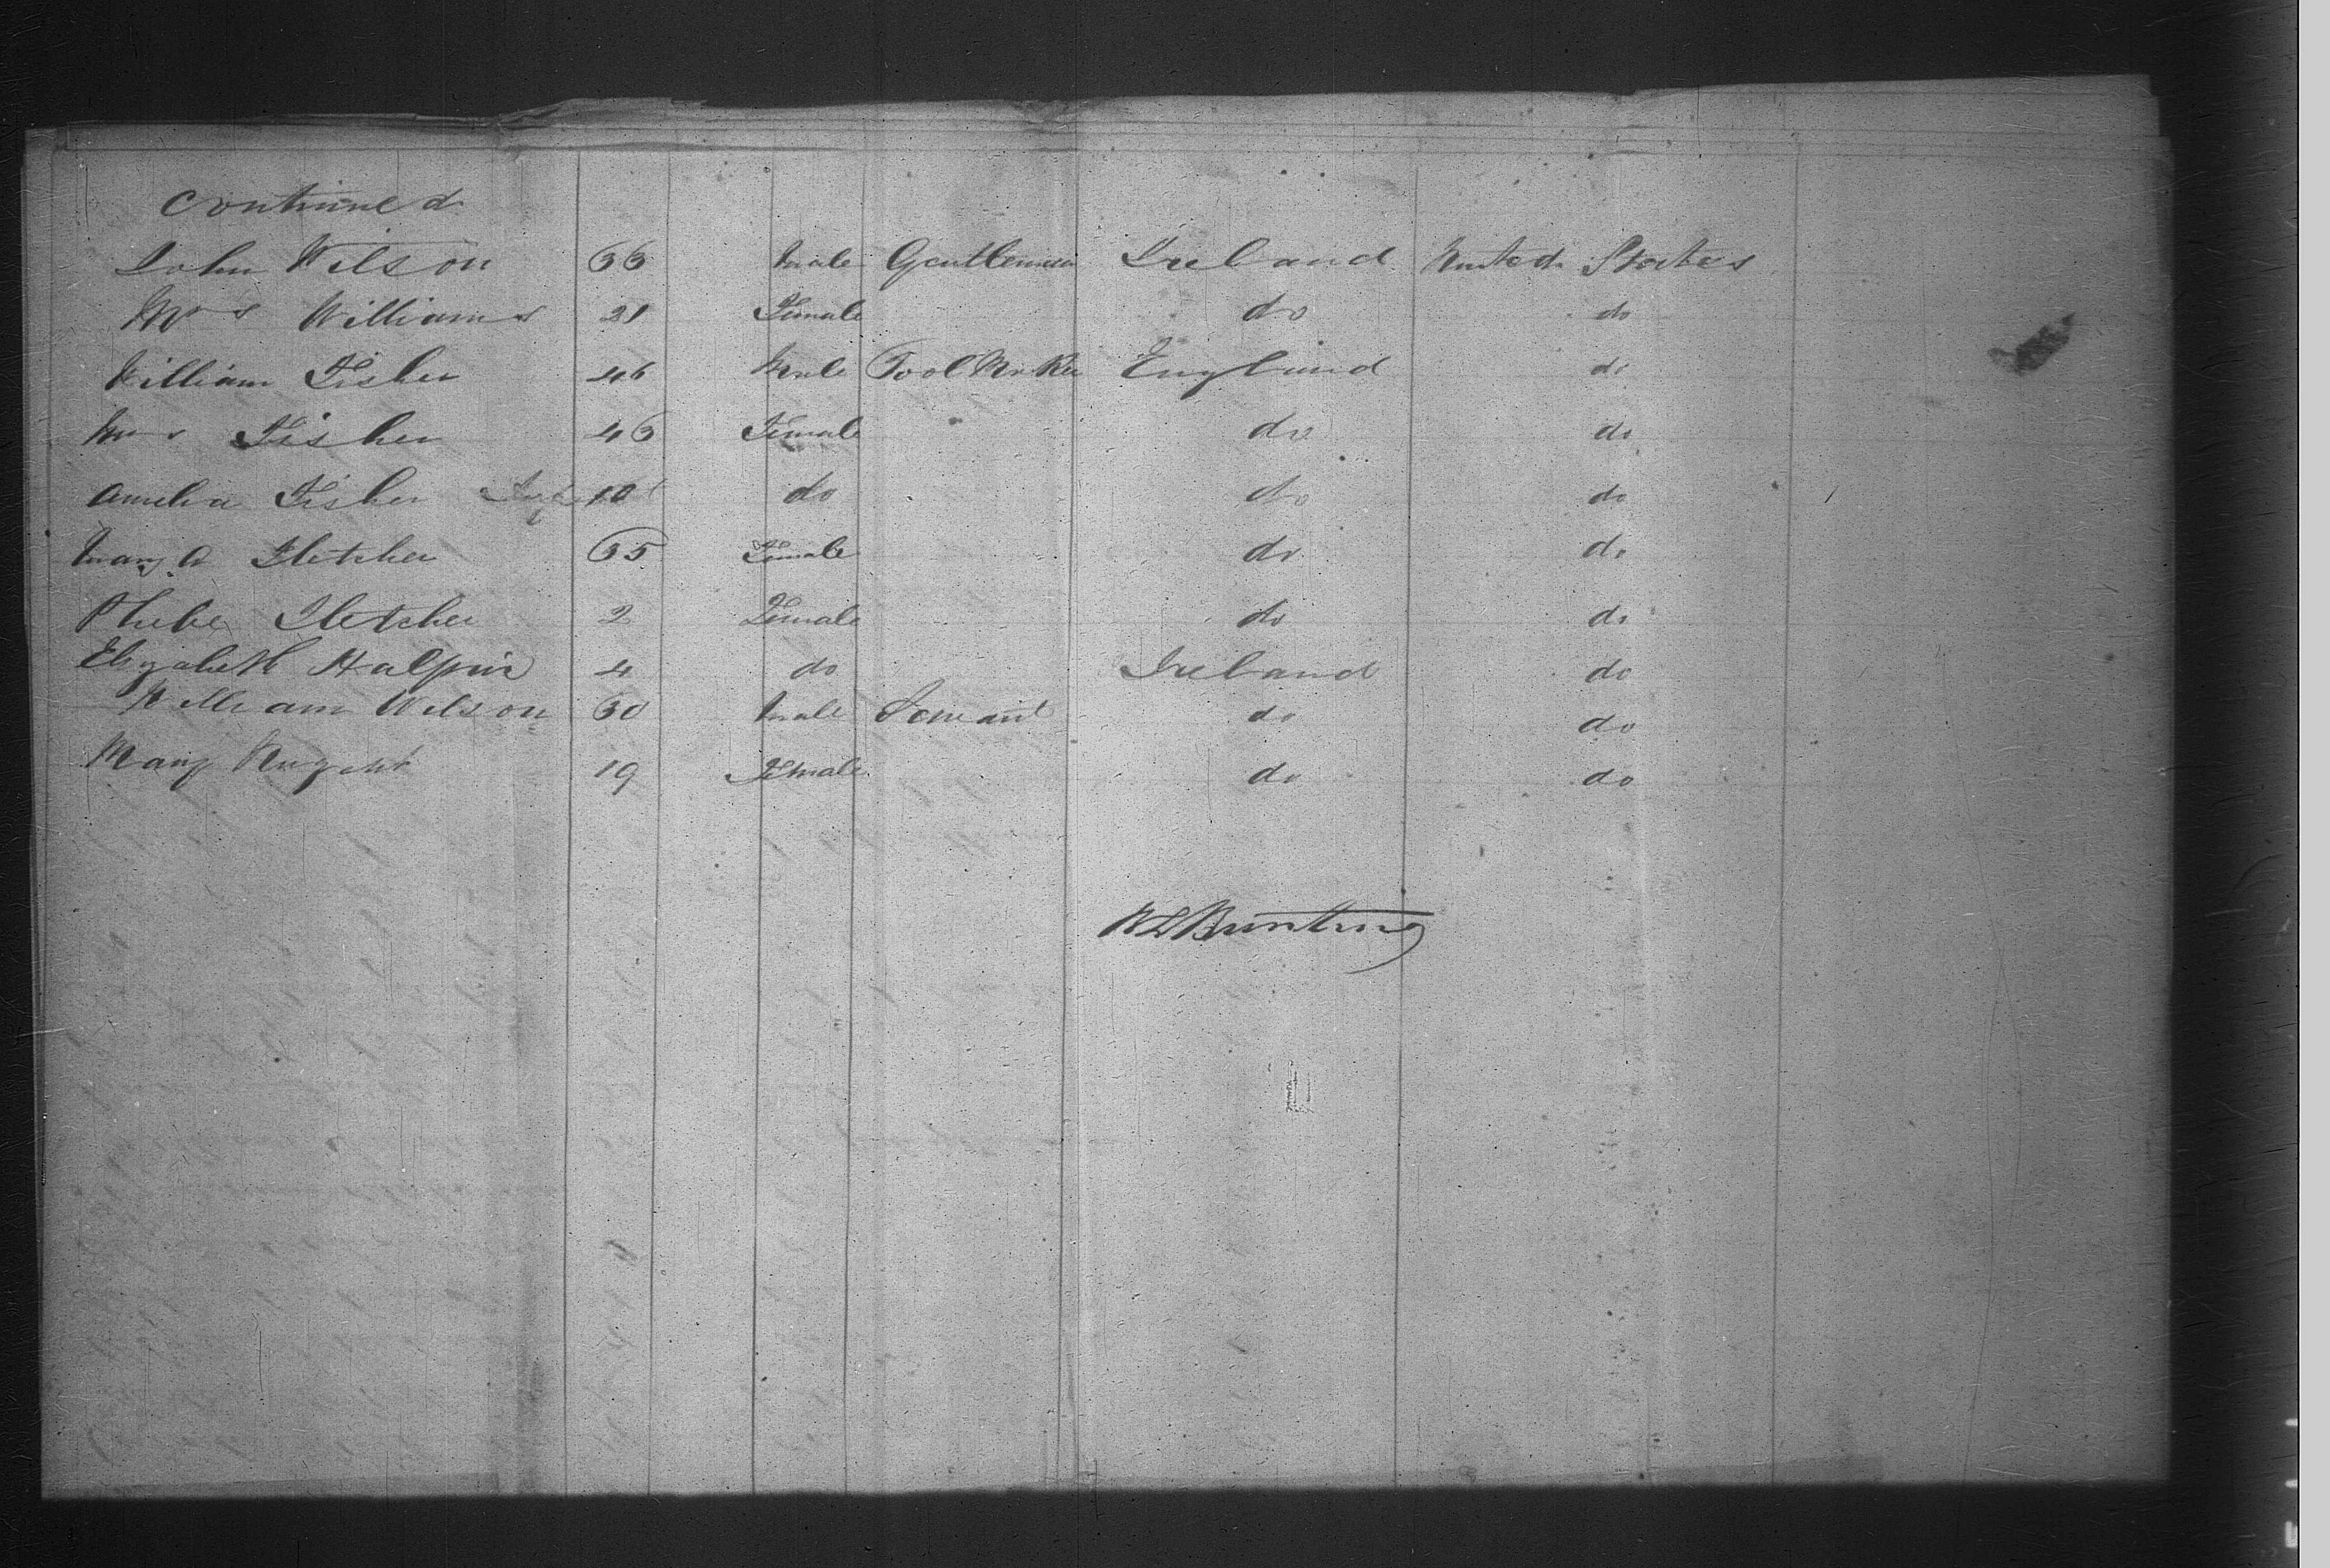 Continued
John Wilson 33 Male Gentleman Ireland United States
Mrs Williams 21 Female do do
William Fisher 46 Male Tool Maker England do
Mrs Fisher 43 Female do do
Amelia Fisher 10 do do do
Mary A Fletcher 35 Female do do
Phebe Fletcher 2 Female do do
Elizabeth Halpin 4 do Ireland do
William Wilson 30 Male Servant do do
Mary Nugent 19 Female do do
W L Bunting